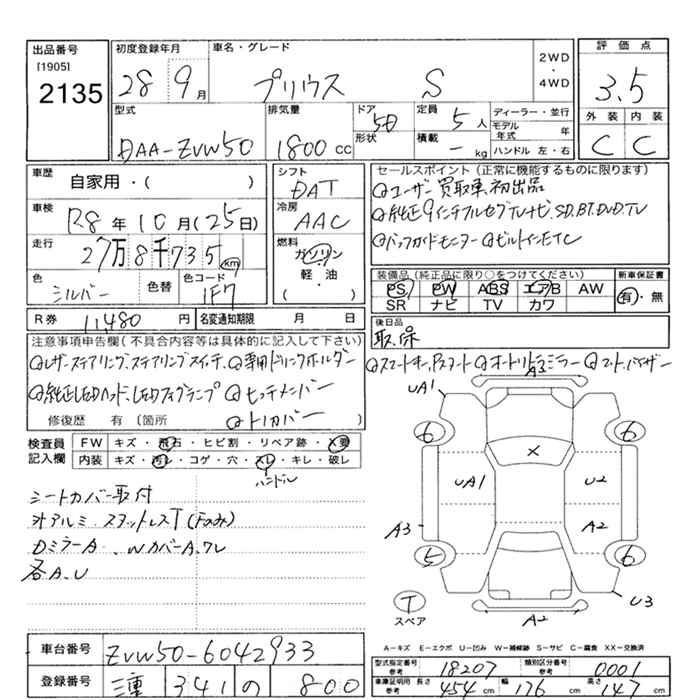 出品番号
[1905]
2135
初度登録年月
28 9月
車名・グレード
プリウス S
2WD
・
4WD
評価点
3.5
外装 内装
C C
型式
DAA-ZVW50
排気量
1800 cc
ドア
形状
5D
定員 5人
積載 - kg
ディーラー・並行
モデル年式 年
ハンドル 左・右
車歴
自家用・( )
車検
R8年10月(25日)
走行
27万8千735km
色
シルバー
色替
色コード
1F7
シフト
DAT
冷房
AAC
燃料
ガソリン
軽・油
( )
セールスポイント(正常に機能するものに限ります)
◎ユーザー買取車初出品
◎純正9インチフルセグTVナビ、SD.BT.DVD.TV
◎バックガイドモニター◎ビルトインETC
装備品(純正品に限り○をつけてください)
PS PW ABS エアB AW
SR ナビ TV カワ
新車保証書
有・無
R券 11480円
名変通知期限 月 日
後日品
取、保
注意事項申告欄(不具合内容等は具体的に記入して下さい)
◎レザーステアリング、ステアリングスイッチ、◎専用ドリンクホルダー
◎スマートキー、Pスタート◎オートリトラミラー◎フットバイザー
◎純正LEDヘッド、LEDフォグランプ◎ヒッチメンバー
修復歴 有 (箇所 )
◎トノカバー
検査員
記入欄
FW キズ・飛石・ヒビ割・リペア跡・X要
内装 キズ・汚レ・コゲ・穴・スレ・キレ・破レ
ハンドル
シートカバー取付
外アルミ・スタッドレスT
Dミラー A、Wカバー A、ワレ
各A、U
UA1
A3
6
6
X
UA1
U2
A3
A2
5
6
T
スペア
A2
U3
A=キズ E=エクボ U=凹み W=補修跡 S=サビ C=腐食 XX=交換済
車台番号
ZVW50-6042933
登録番号
三重 341 の 800
型式指定番号
参考
18207
類別区分番号
参考
0001
車庫証明用
参考
長さ 454cm
幅 176cm
高さ 147cm